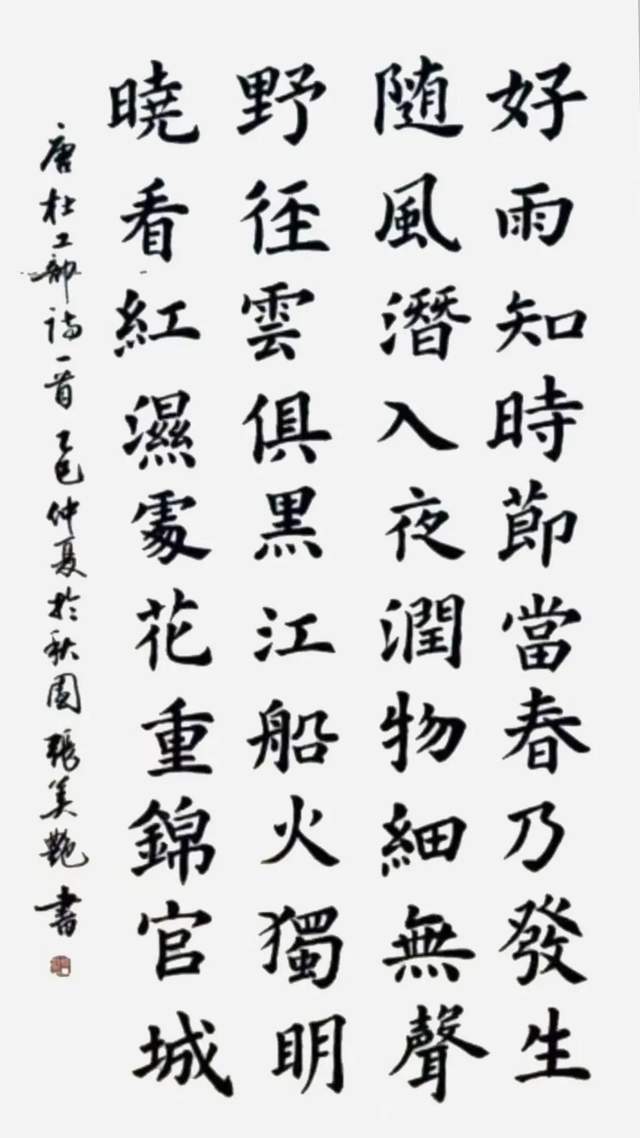 好雨知時節當春乃發生
随風潛入夜潤物細無聲
野径雲俱黑江船火獨明
曉看紅濕處花重錦官城
唐杜工部诗一首乙巳仲夏於秋園張美艷書